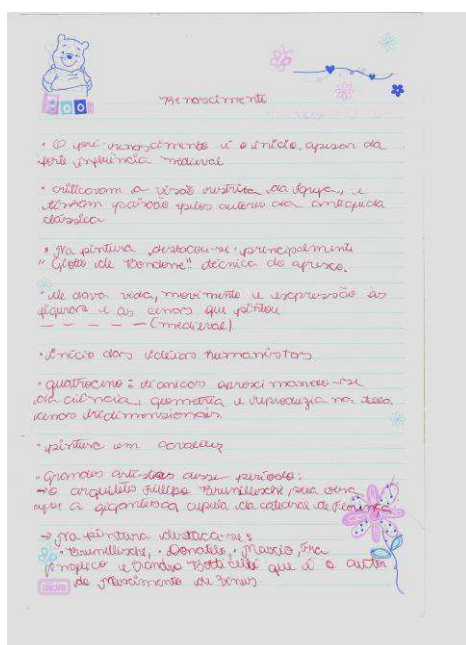 POO
Renascimento
• O pré-renascimento é o início, apesar da
forte influência medieval
• criticavam a visão restrita da Igreja, e
tinham paixão pelos autores da antiguida
clássica
• Na pintura destacou-se principalmente
"Giotto de Bondone" técnica do afresco.
• ele dava vida, movimento e expressão às
figuras e as cenas que pintou
— — — — — (medieval)
• início das ideias humanistas
• quatrocino: técnicas aproximando-se
da ciência, geometria e reproduzia na tela
cenas tridimensionais.
• pintura em
• Grandes artistas desse período:
→ o arquiteto Fellipo Brunilleschi, sua obra
a gigantesca cupula da catedral de Florença
→ Na pintura destaca-se:
• Brunilleschi, • Donatelo, • Fra
Angelico e Sandro Botticelli que é o autor
do Nascimento de Venus.